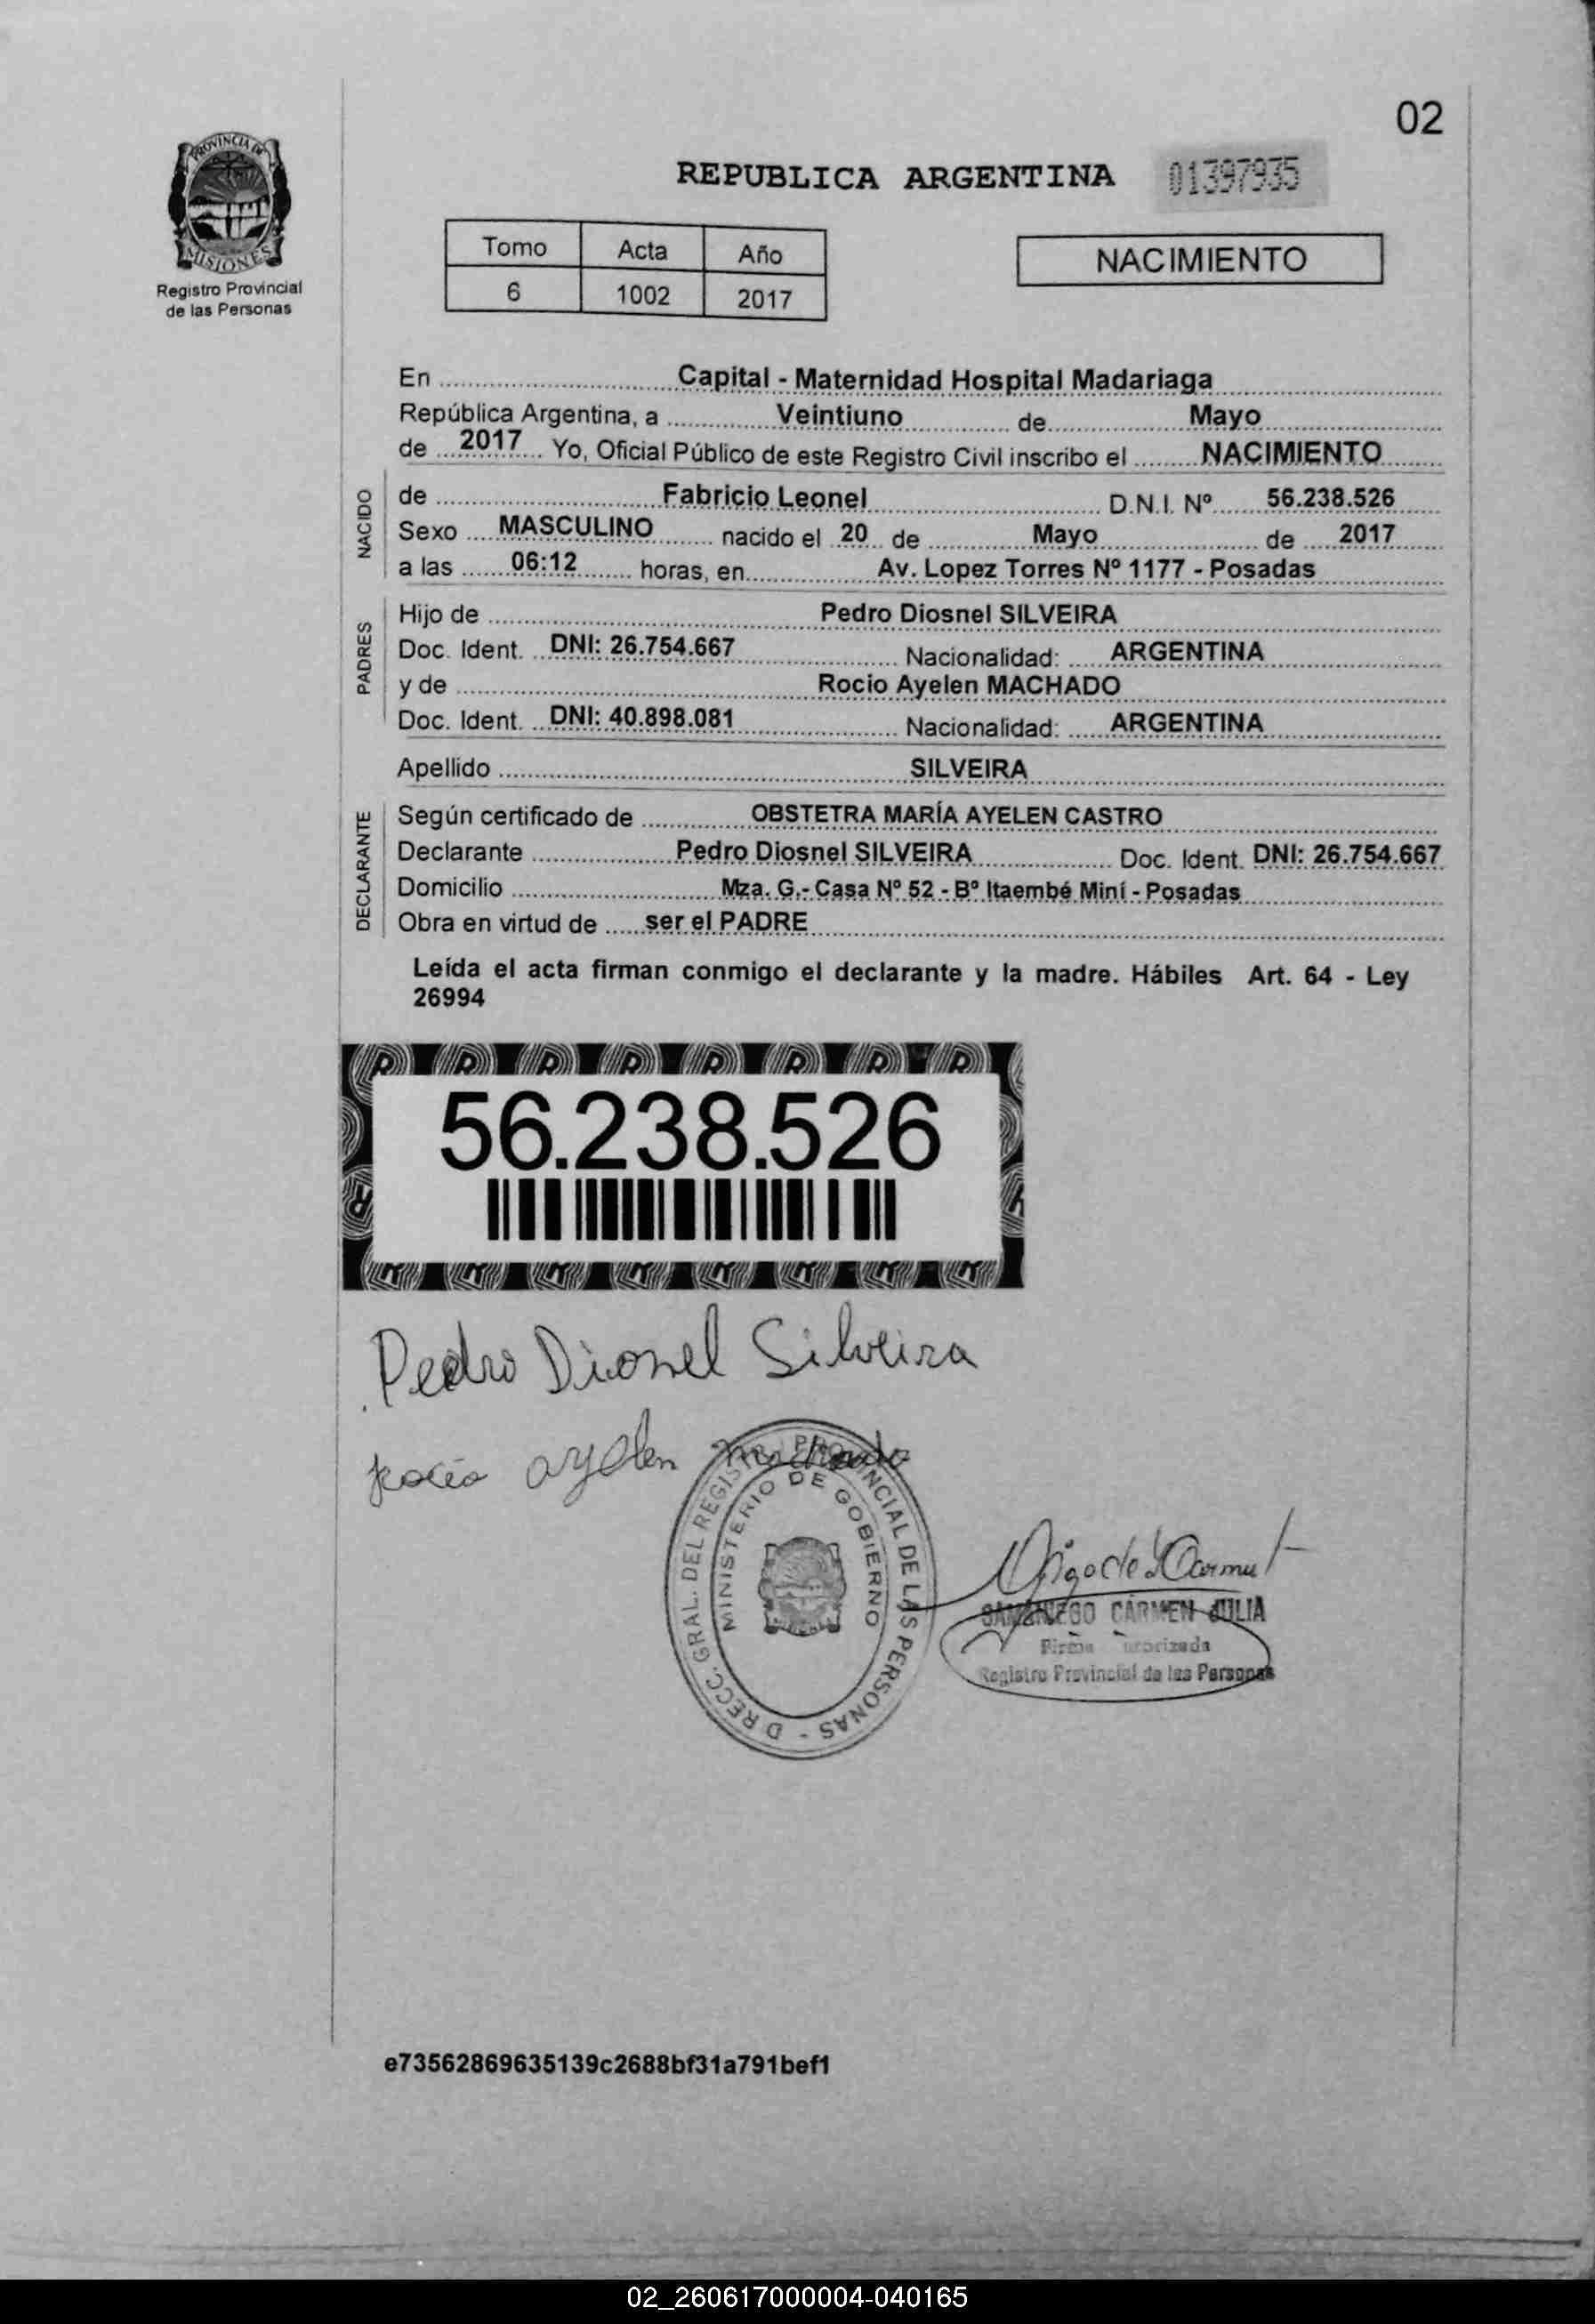 02
PROVINCIA DE
MISIONES
Registro Provincial
de las Personas
REPUBLICA ARGENTINA 01397935
Tomo Acta Año
6 1002 2017
NACIMIENTO
En Capital - Maternidad Hospital Madariaga
República Argentina, a Veintiuno de Mayo
de 2017 Yo, Oficial Público de este Registro Civil inscribo el NACIMIENTO
NACIDO
de Fabricio Leonel D.N.I. Nº 56.238.526
Sexo MASCULINO nacido el 20 de Mayo de 2017
a las 06:12 horas, en Av. Lopez Torres Nº 1177 - Posadas
PADRES
Hijo de Pedro Diosnel SILVEIRA
Doc. Ident. DNI: 26.754.667 Nacionalidad: ARGENTINA
y de Rocio Ayelen MACHADO
Doc. Ident. DNI: 40.898.081 Nacionalidad: ARGENTINA
Apellido SILVEIRA
DECLARANTE
Según certificado de OBSTETRA MARÍA AYELEN CASTRO
Declarante Pedro Diosnel SILVEIRA Doc. Ident. DNI: 26.754.667
Domicilio Mza. G.- Casa Nº 52 - Bº Itaembé Miní - Posadas
Obra en virtud de ser el PADRE
Leída el acta firman conmigo el declarante y la madre. Hábiles Art. 64 - Ley
26994
56.238.526
Pedro Dionel Silveira
Rocio ayelen machado
D RECC. GRAL. DEL REGIS PROVINCIAL DE LAS PERSONAS -
MINISTERIO DE GOBIERNO
CARMEN JULIA
Firma
Registro Provincial de las Personas
e73562869635139c2688bf31a791bef1
02_260617000004-040165